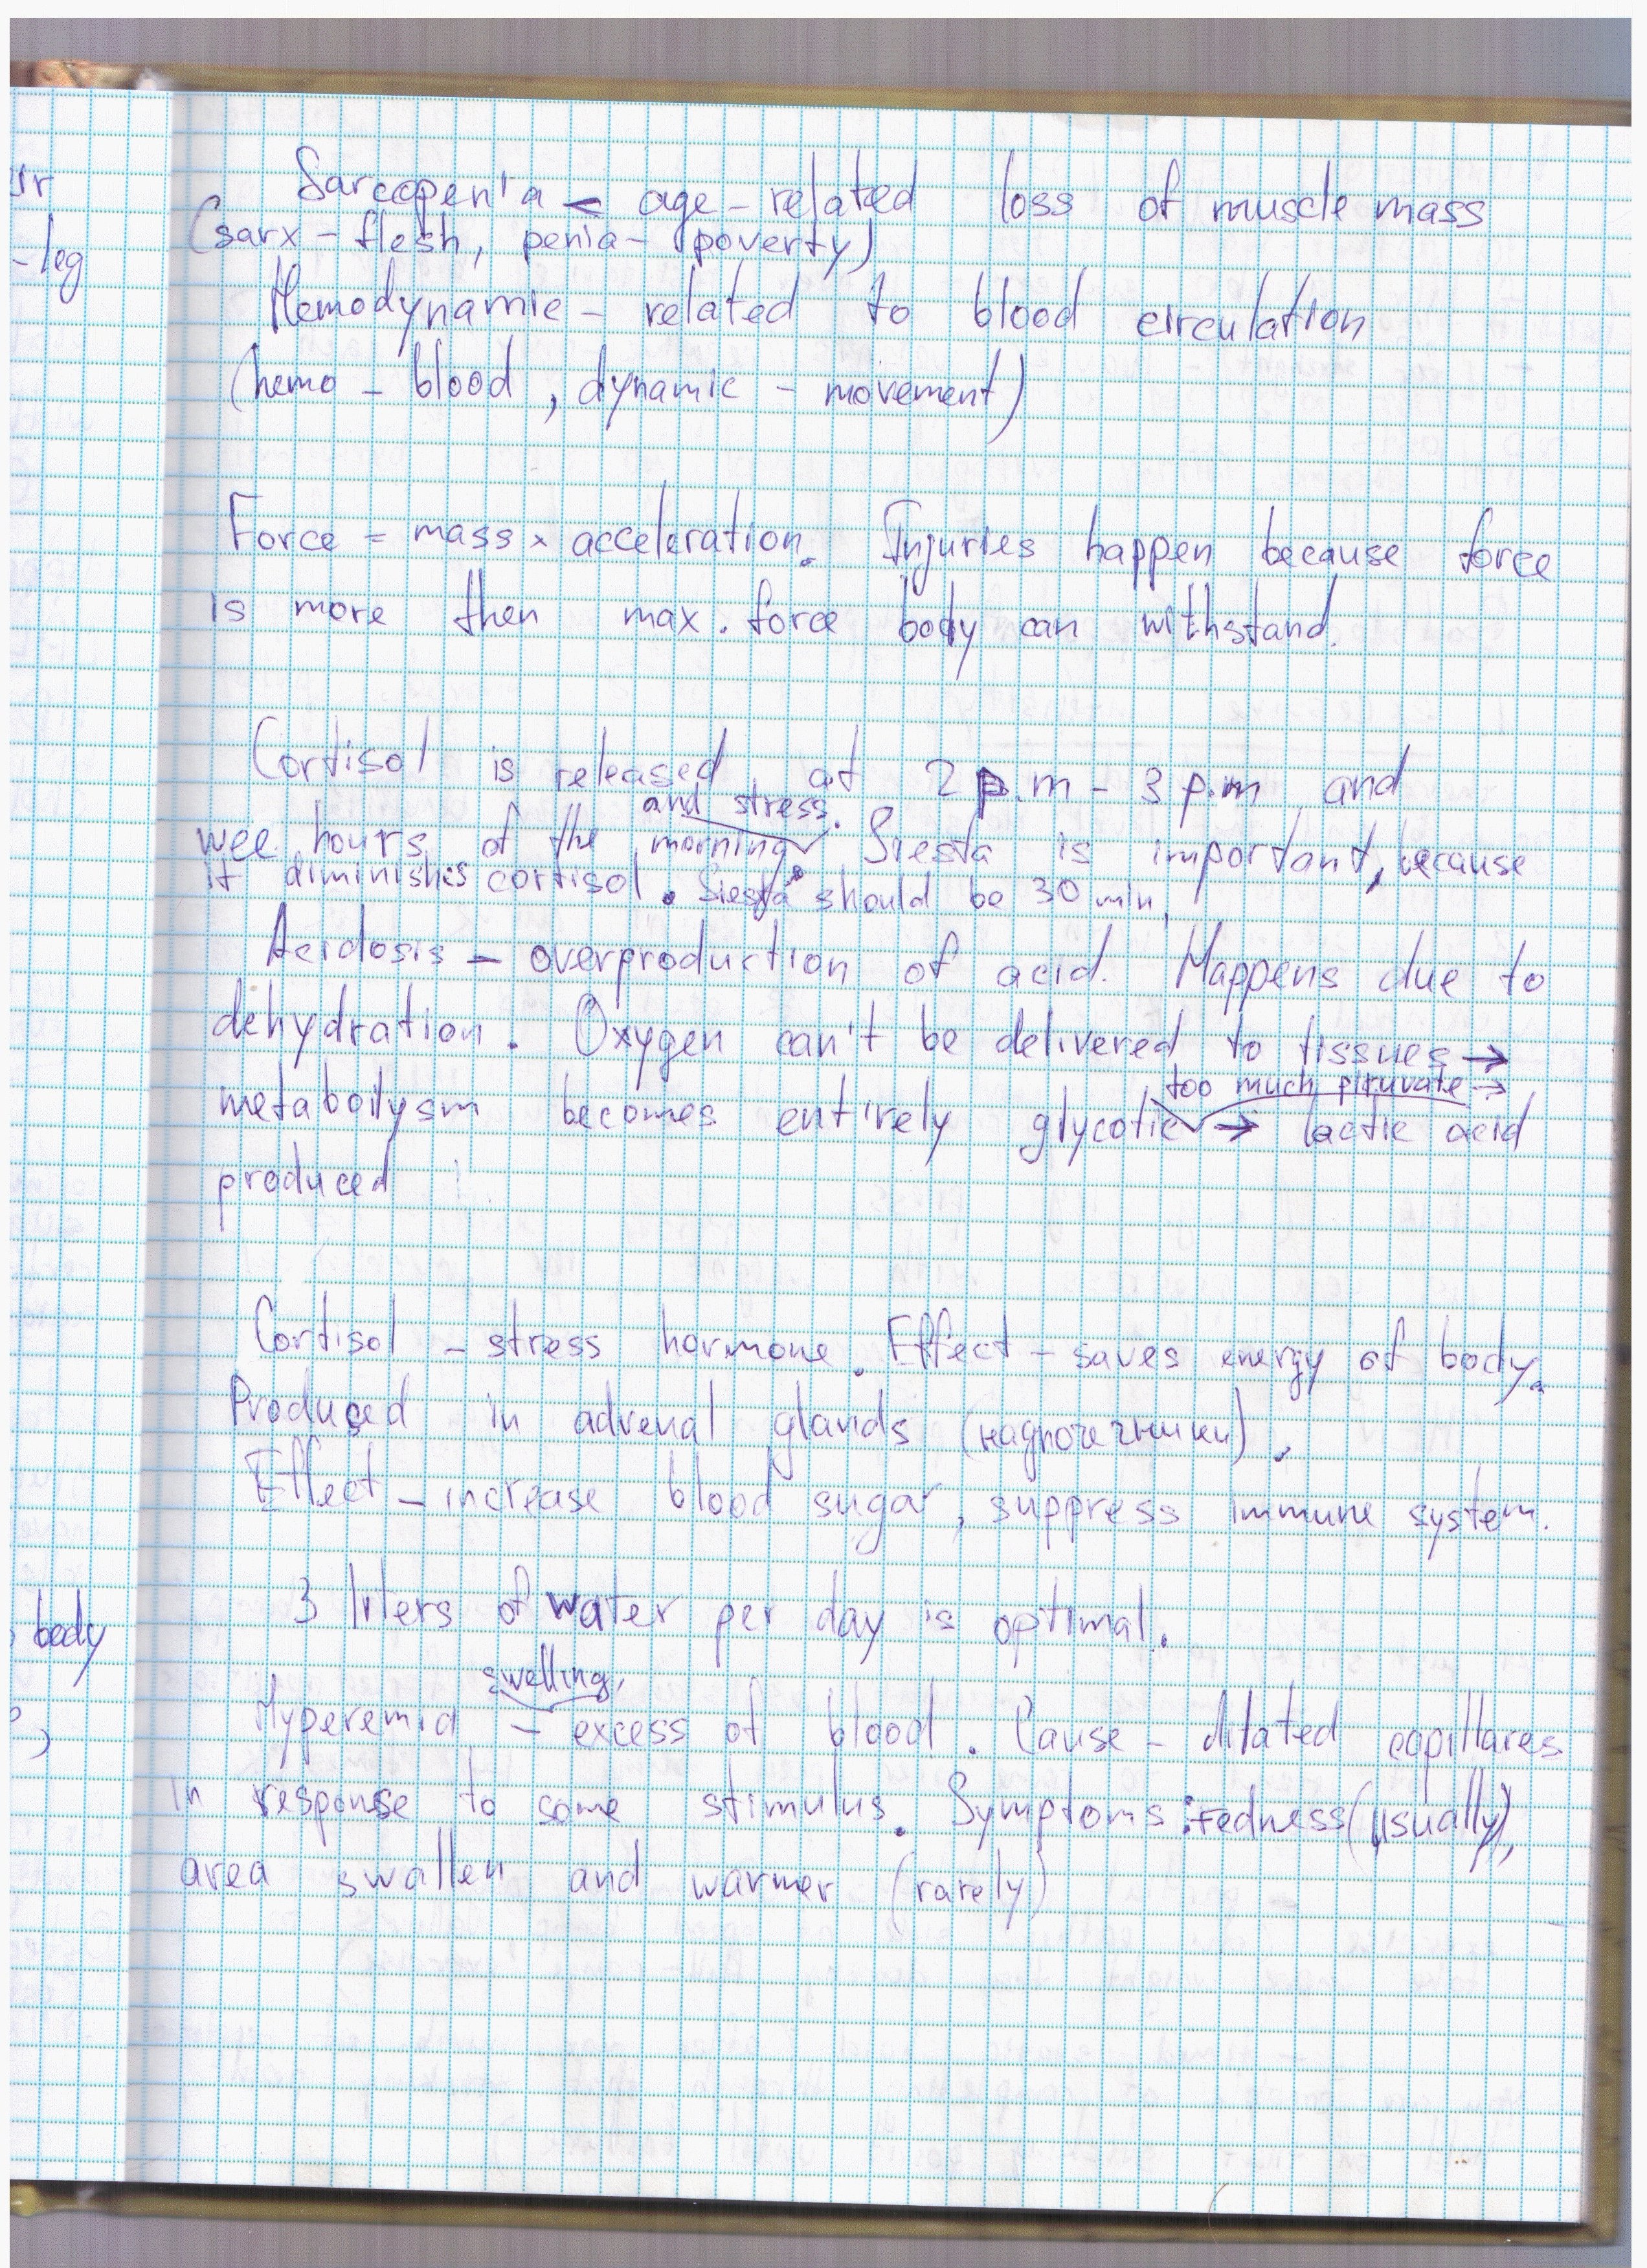 ir
-leg
Sarcopenia - age-related loss of muscle mass
(sarx - flesh, penia - poverty)
Hemodynamic - related to blood circulation
(hemo - blood, dynamic - movement)
Force = mass x acceleration. Injuries happen because force
is more then max. force body can withstand.
Cortisol is released at 2 p.m - 3 p.m and
and stress.
wee hours of the morning. Siesta is important, because
it diminishes cortisol. Siesta should be 30 min.
Acidosis - overproduction of acid. Happens due to
dehydration. Oxygen can't be delivered to tissues →
too much piruvate →
metabolysm becomes entirely glycotic → lactic acid
produced
Cortisol - stress hormone. Effect - saves energy of body.
Produced in adrenal glands (надпочечники).
Effect - increase blood sugar, suppress immune system.
3 liters of water per day is optimal.
body
swelling,
Hyperemia - excess of blood. Cause - dilated capillares
in response to some stimulus. Symptoms: redness (usually),
area swallen and warmer (rarely)